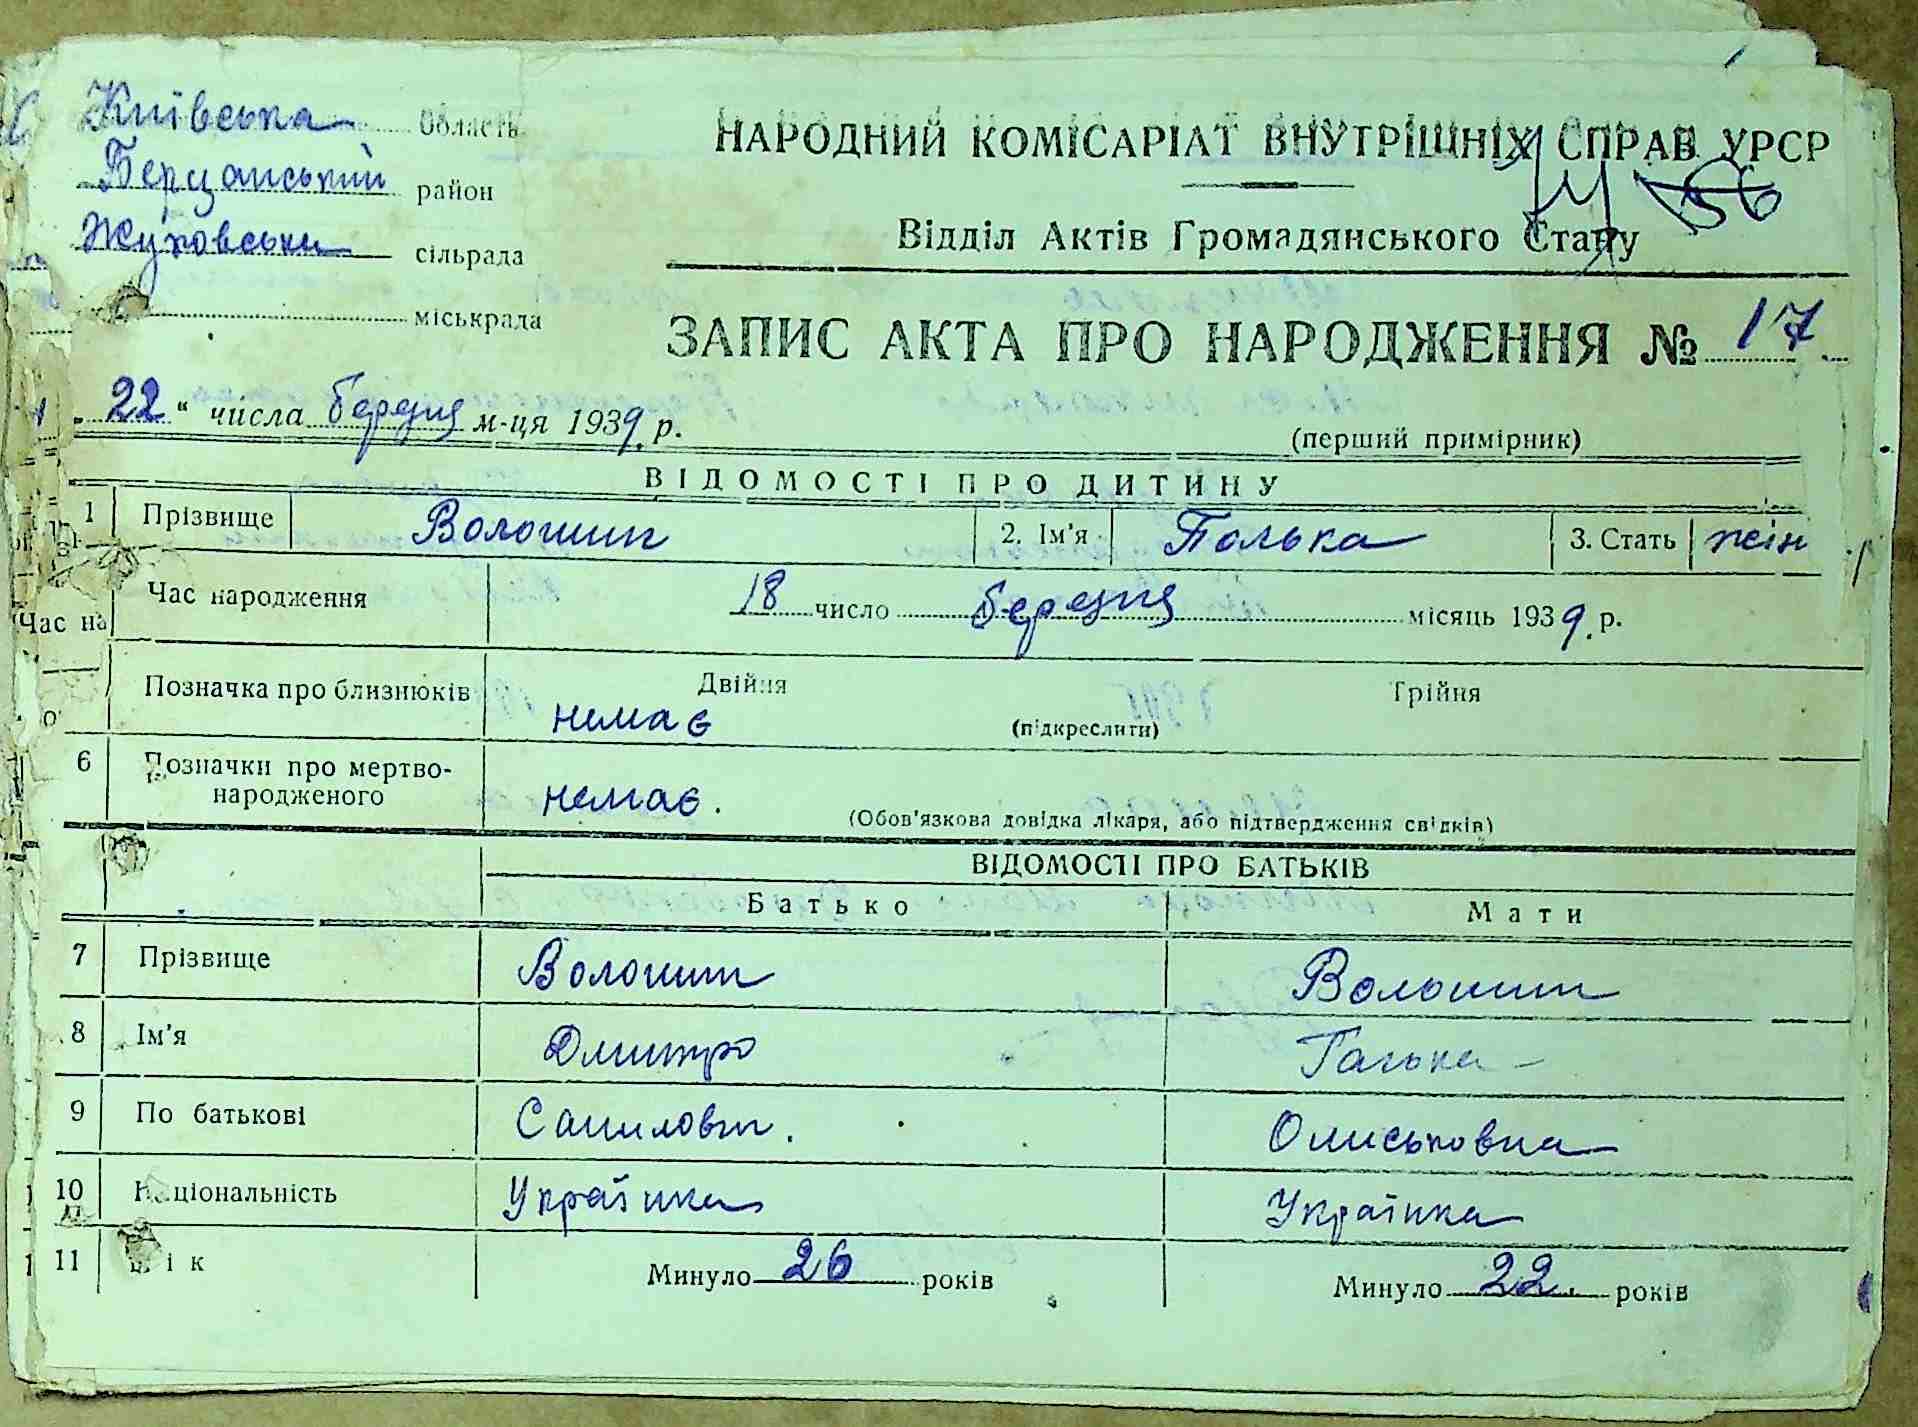 Київська область
район
сільрада
міськрада
НАРОДНИЙ КОМІСАРІАТ ВНУТРІШНІХ СПРАВ УРСР
Відділ Актів Громадянського Стану
ЗАПИС АКТА ПРО НАРОДЖЕННЯ № 17
„22“ числа березня м-ця 1939 р.
(перший примірник)
ВІДОМОСТІ ПРО ДИТИНУ
1 Прізвище Волошин 2. Ім'я Полька 3. Стать жін
Час народження 18 число березня місяць 1939 р.
Час на
Позначка про близнюків Двійня Трійня
немає (підкреслити)
6 Позначки про мертво-
народженого немає.
(Обов'язкова довідка лікаря, або підтвердження свідків)
ВІДОМОСТІ ПРО БАТЬКІВ
Батько Мати
7 Прізвище Волошин Волошин
8 Ім'я Дмитро Галька
9 По батькові
10 Національність Українка Українка
11 Вік Минуло 26 років Минуло 22. років